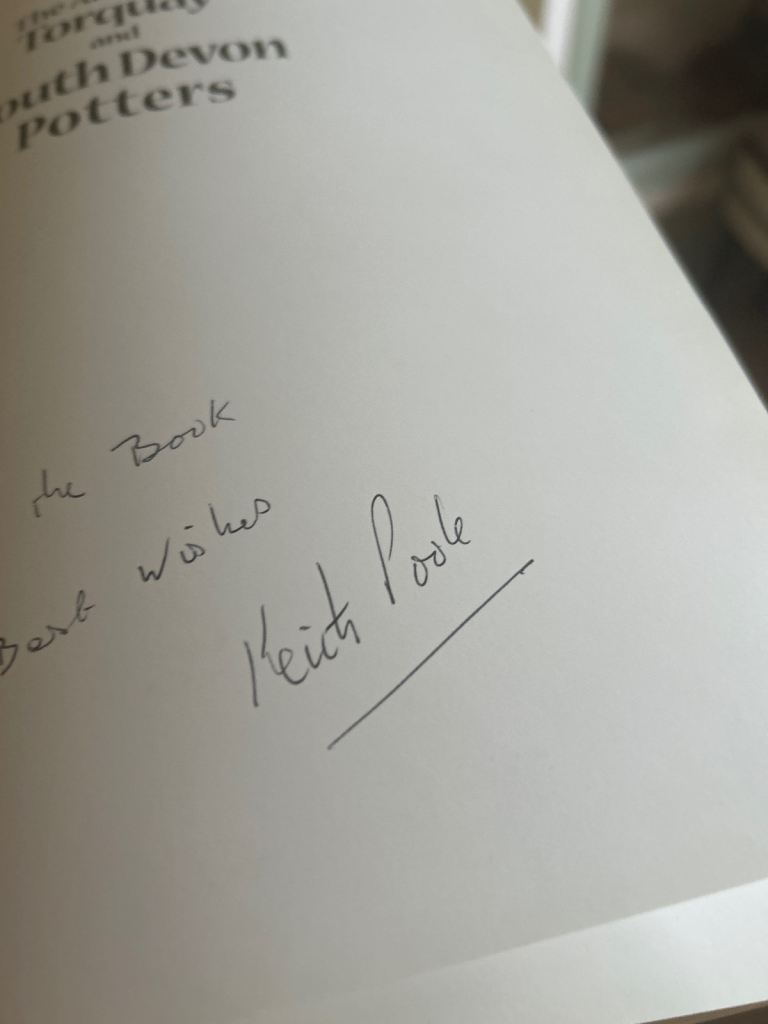 The
Torquay
and
outh Devon
Potters
the Book
Best Wishes
Keith Poole